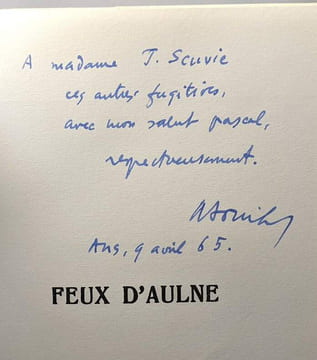 A madame J. Scuvie
ces autres fugitives,
avec mon salut pascal,
respectueusement.
Ans, 9 avril 65.
FEUX D'AULNE